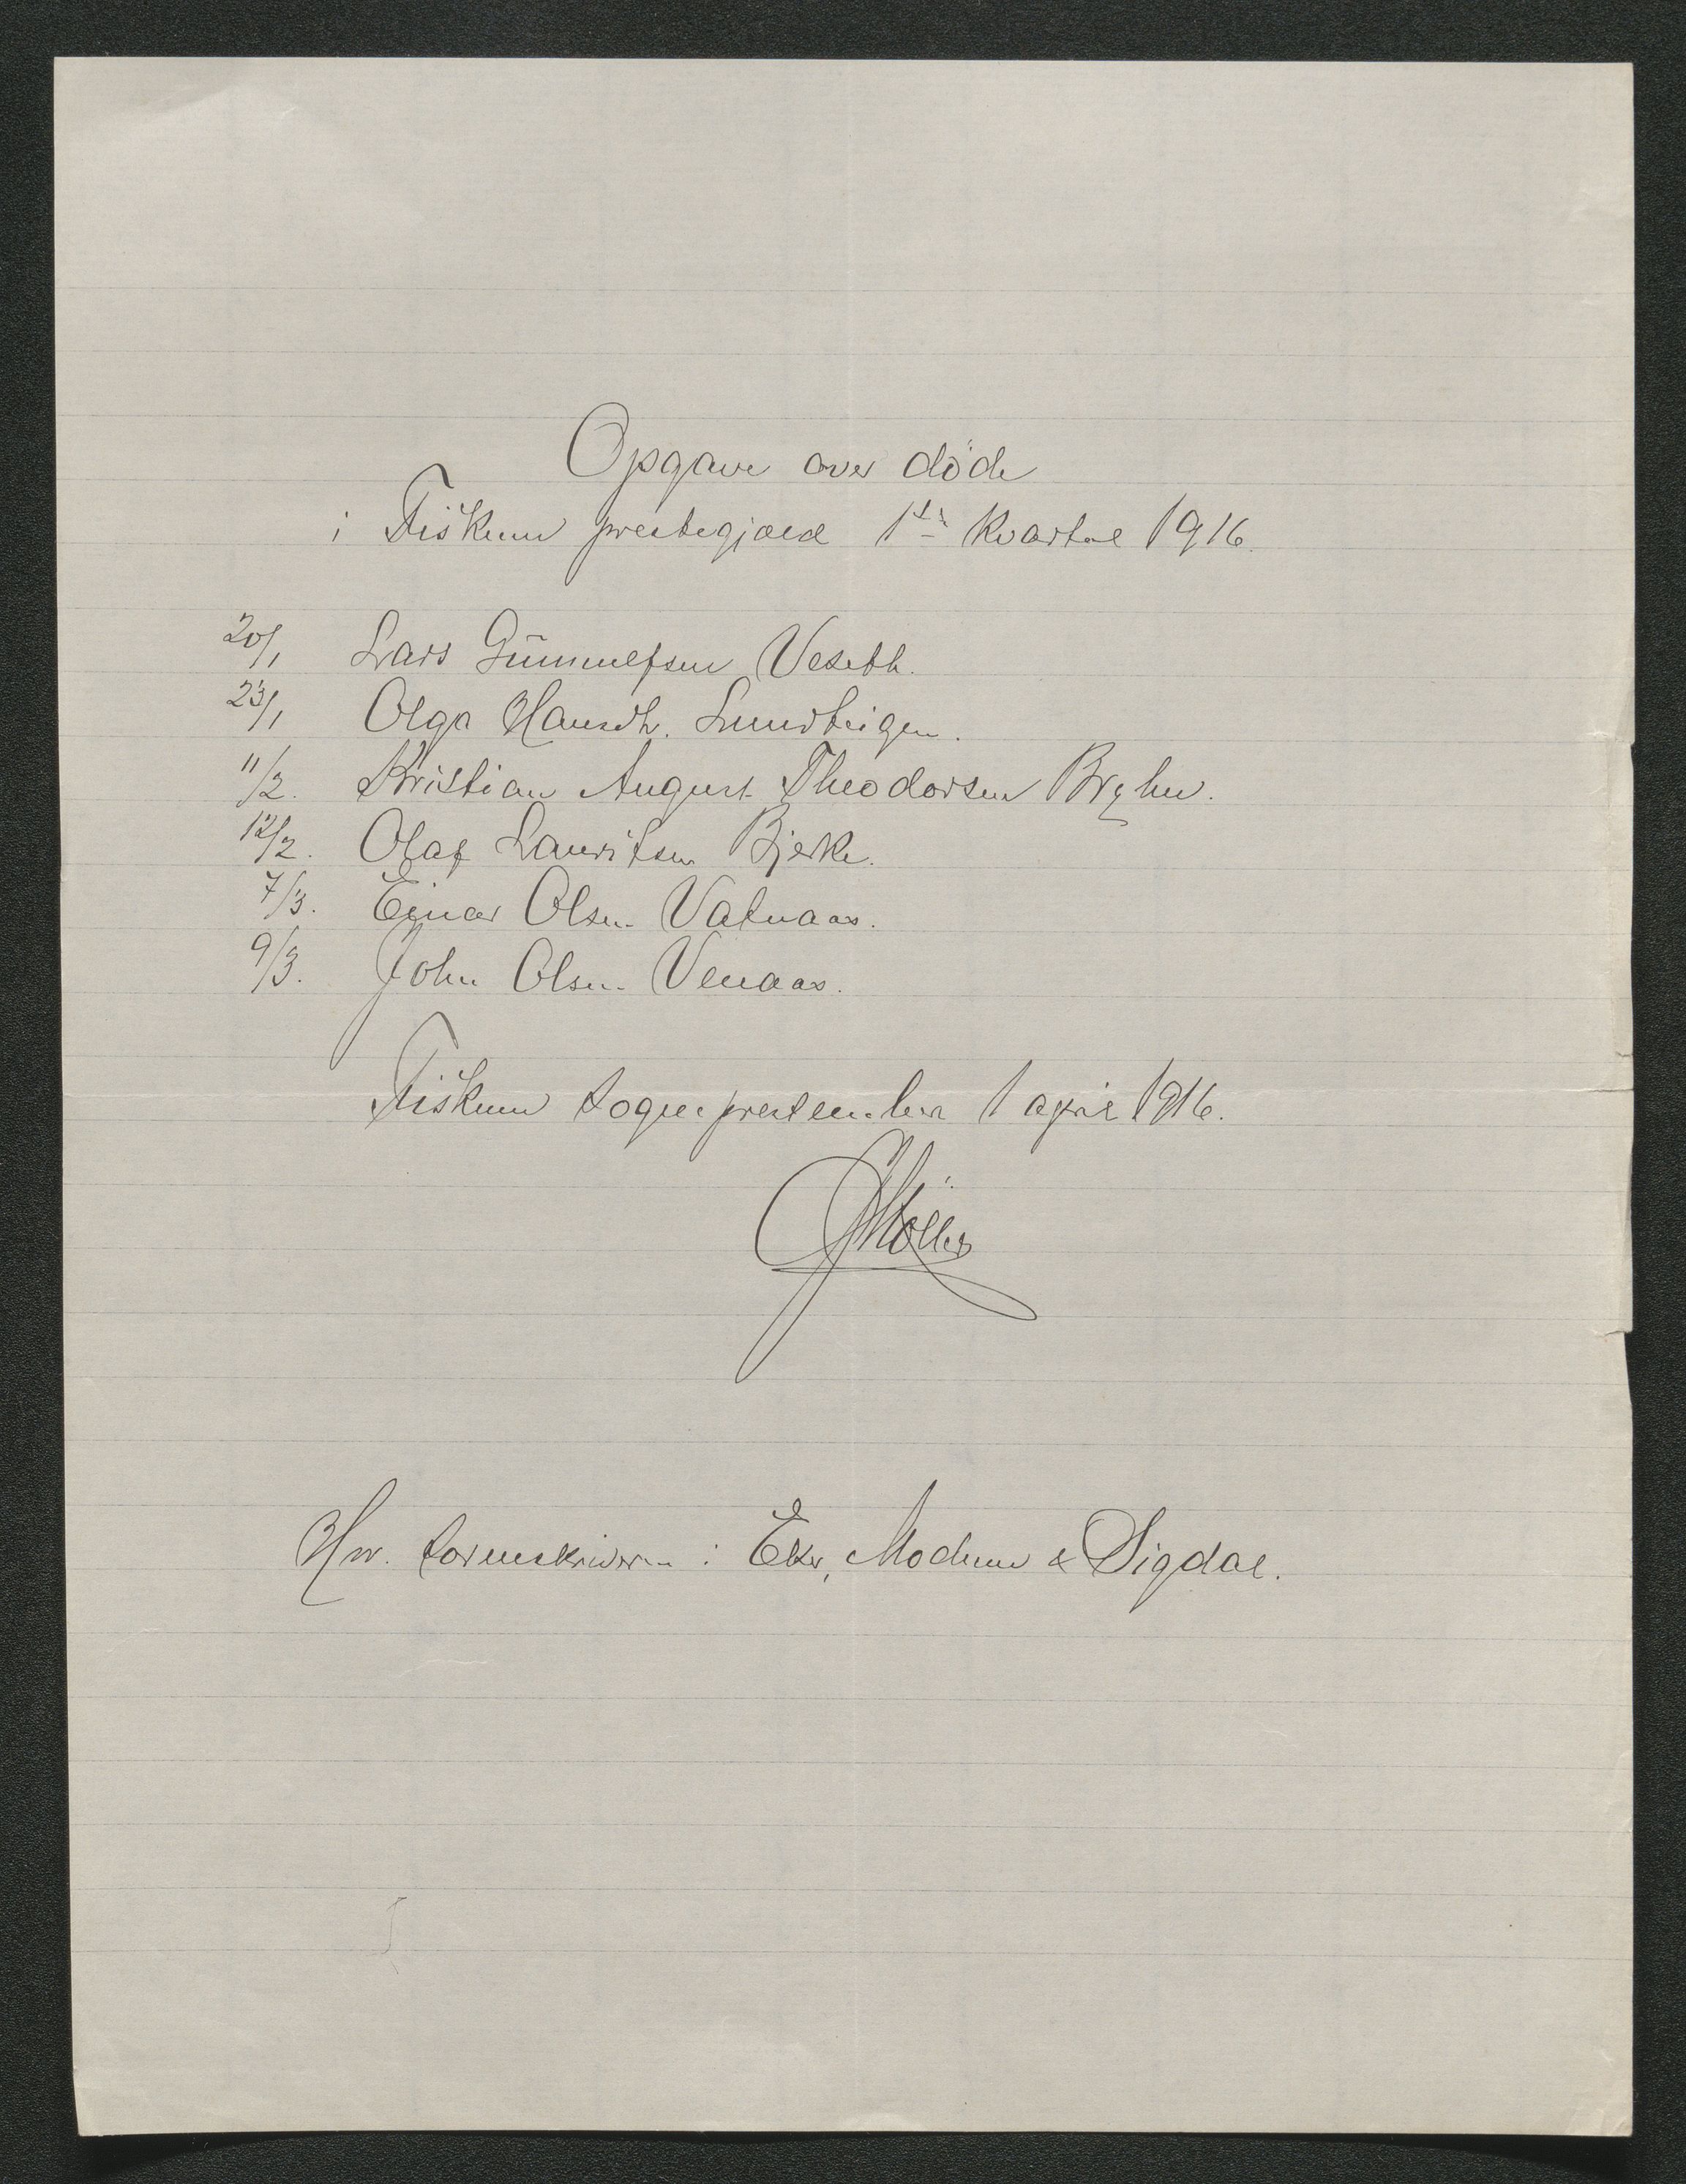 Opgave over döde
i Fiskum prestegjæld 1ste Kvartal 1916.
20/1 Lars Gūnnulfsen Veseth.
23/1 Olga Hansdtr. Lundteigen.
11/2. Kristian August Theodorsen Bryhn.
12/2. Olaf Lauritsen Bjerke.
7/3. Einar Olsen Vatnaas.
9/3. John Olsen Venaas.
Fiskum sogneprestembede 1 april 1916.
Möller
Hr. sorenskriveren i Eker, Modum & Sigdal.